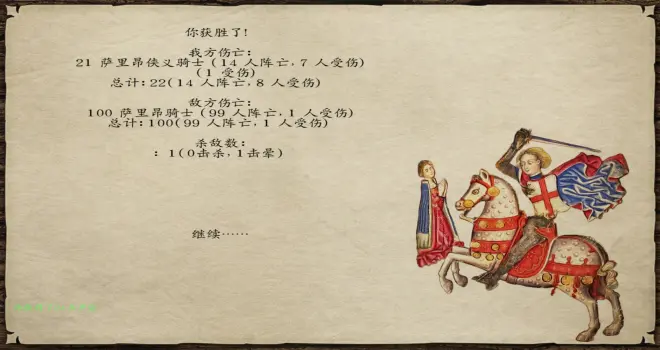 你获胜了!
我方伤亡:
21 萨里昂侠义骑士 (14 人阵亡, 7 人受伤)
(1 受伤)
总计: 22(14 人阵亡, 8 人受伤)
敌方伤亡:
100 萨里昂骑士 (99 人阵亡, 1 人受伤)
总计: 100(99 人阵亡, 1 人受伤)
杀敌数:
: 1(0击杀, 1击晕)
继续……